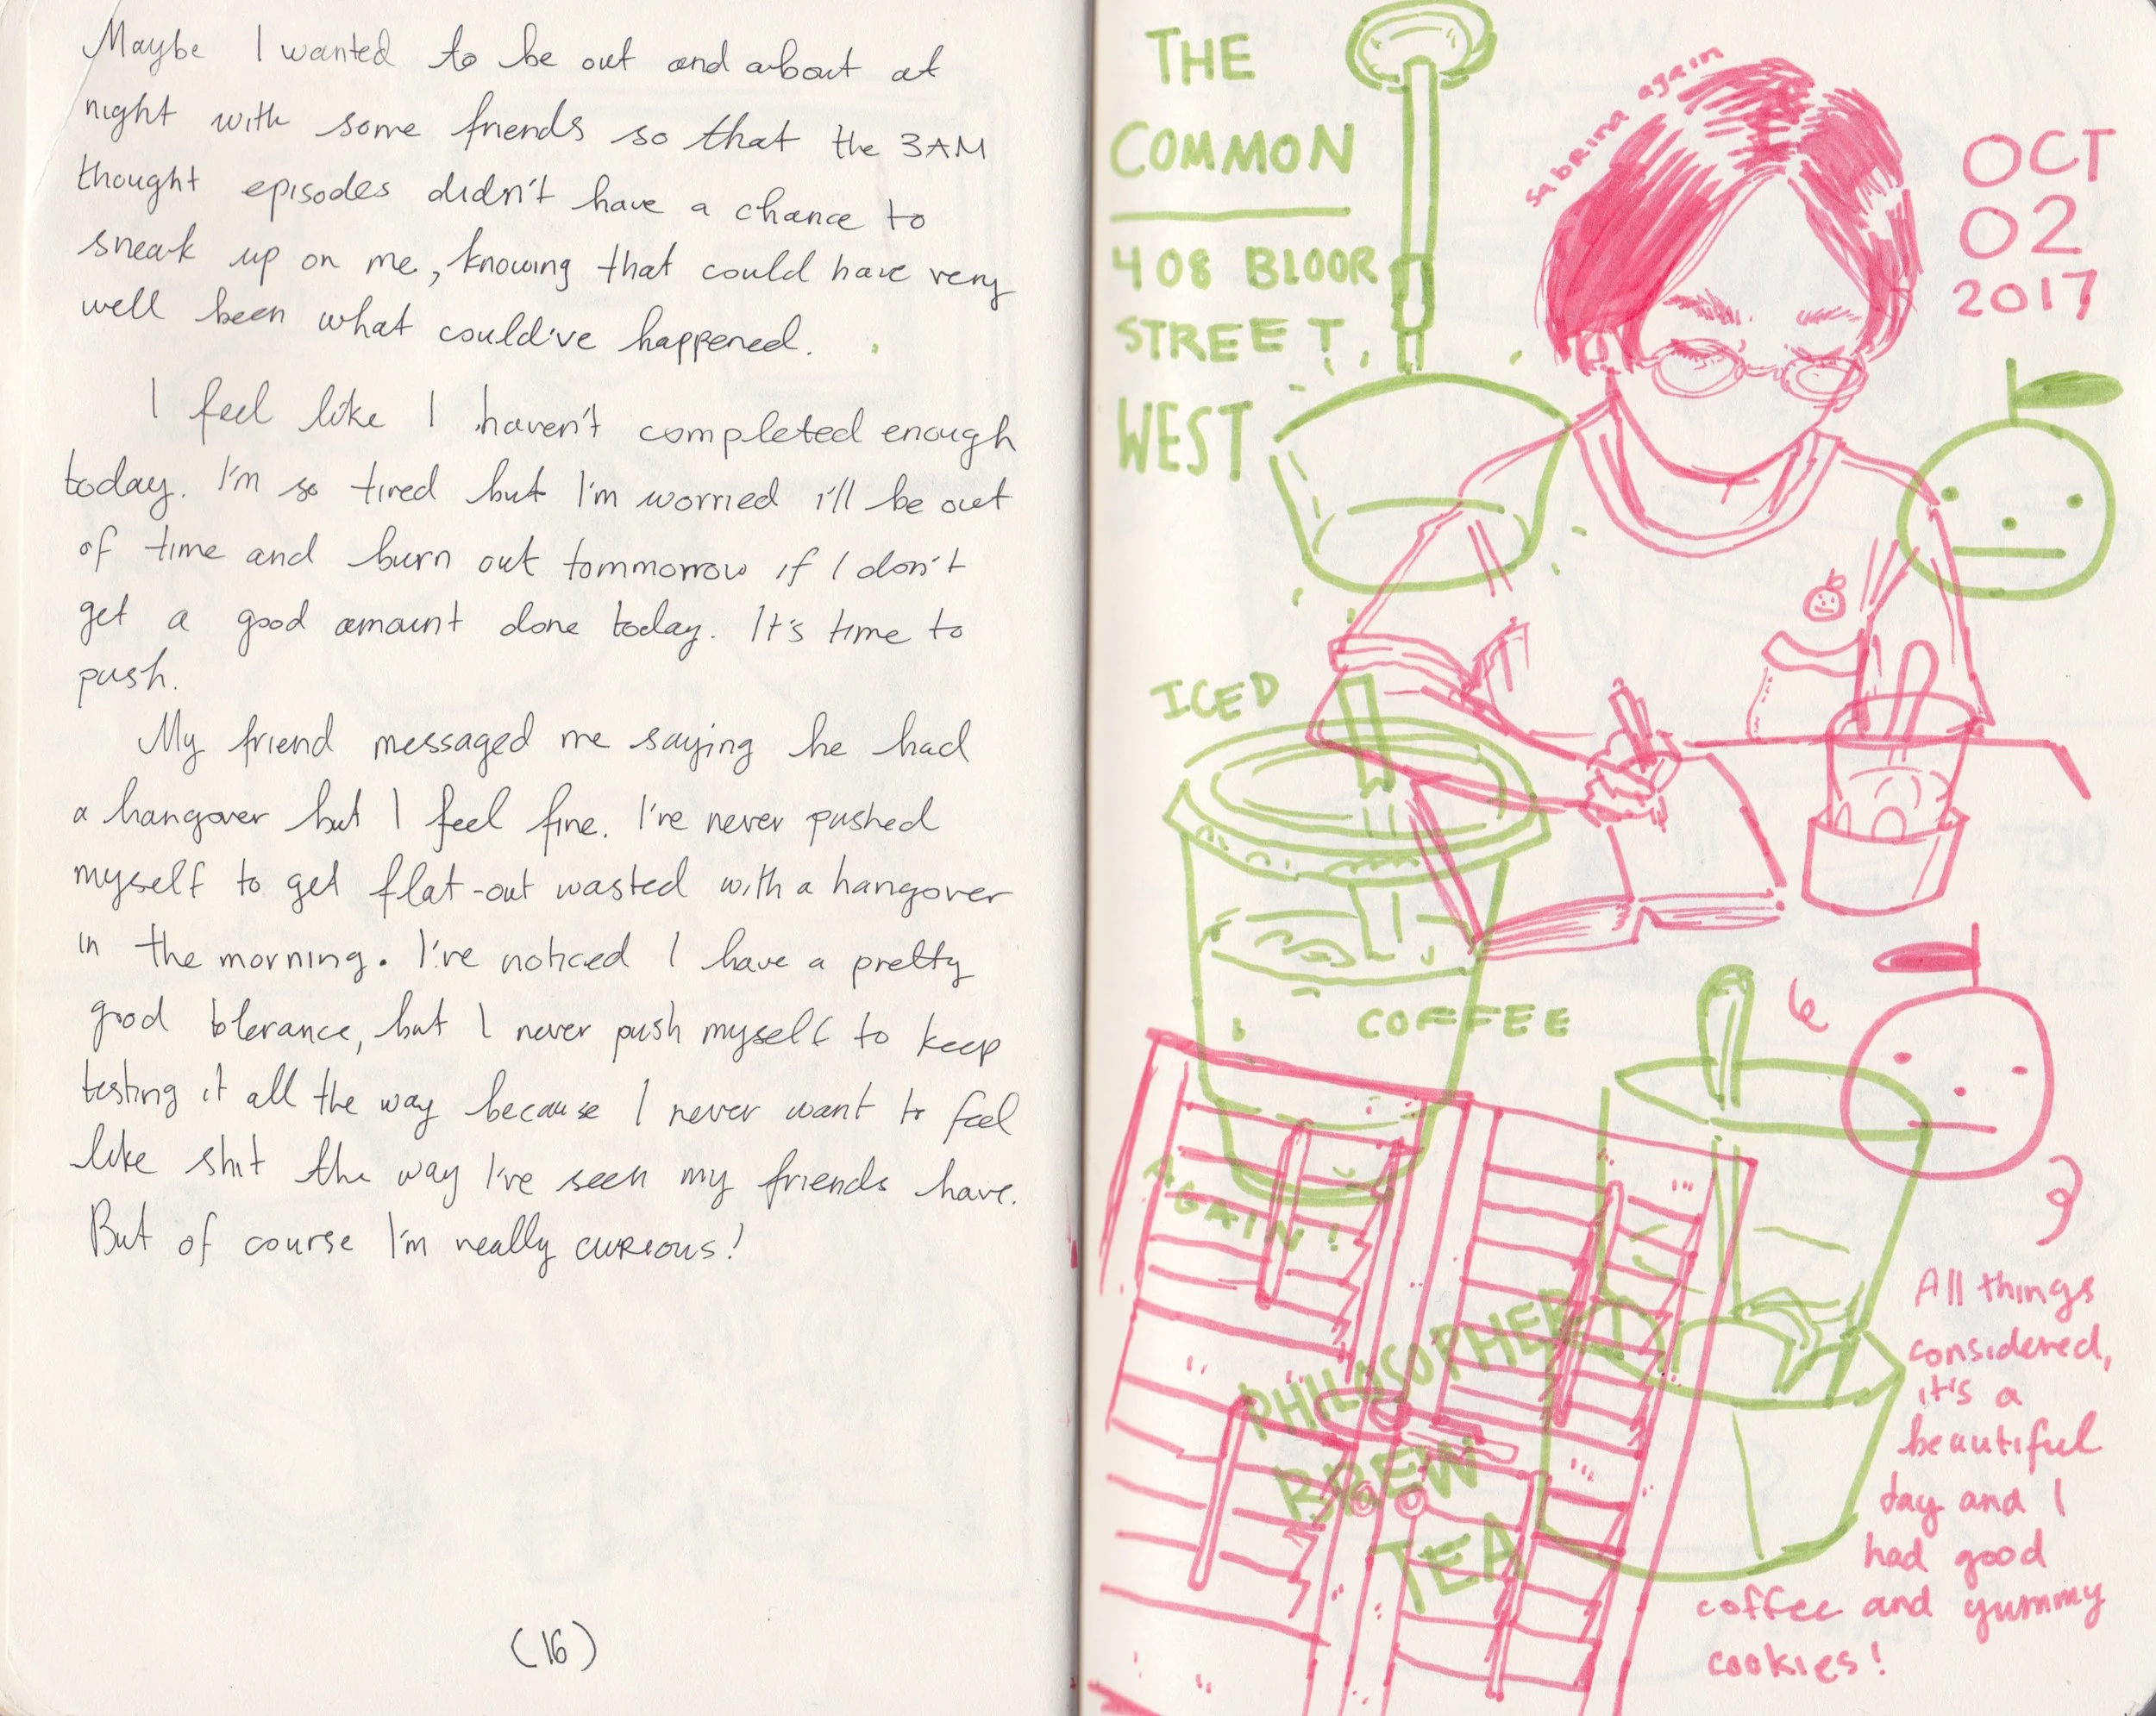 Maybe I wanted to be out and about at
night with some friends so that the 3AM
thought episodes didn't have a chance to
sneak up on me, knowing that could have very
well been what could've happened.
I feel like I haven't completed enough
today. I'm so tired but I'm worried i'll be out
of time and burn out tommorrow if I don't
get a good amount done today. It's time to
push.
My friend messaged me saying he had
a hangover but I feel fine. I've never pushed
myself to get flat-out wasted with a hangover
in the morning. I've noticed I have a pretty
good tolerance, but I never push myself to keep
testing it all the way because I never want to feel
like shit the way I've seen my friends have.
But of course I'm really curious!
(16)
THE
COMMON
408 BLOOR
STREET,
WEST
sabrina again
OCT
02
2017
ICED
COFFEE
AGAIN!
PHILOSOPHER'S
BREW
TEA
All things
considered,
it's a
beautiful
day and I
had good
coffee and yummy
cookies!